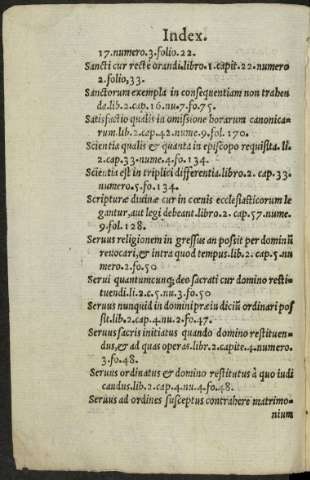 Index.
17.numero.3.folio.22.
Sancti cur recte orandi.libro.1.capit.22.numero
2.folio,33.
Sanctorum exempla in consequentiam non trahen
da.lib.2.cap.16.nu.7.fo.75.
Satisfactio qualis in omissione horarum canonica-
rum.lib.2.cap.42.nume.9.fol.170.
Scientia qualis & quanta in episcopo requisita.li.
2.cap.33.nume.4.fo.134.
Scientia est in triplici differentia.libro.2. cap.33.
numero.5.fo.134.
Scripturæ diuinæ cur in cœnis ecclesiasticorum le
gantur,aut legi debeant.libro.2. cap.57.nume.
9.fol.128.
Seruus religionem in gressus an possit per dominũ
reuocari,& intra quod tempus.lib.2.cap.5.nu
mero.2.fo.50
Serui quantumcunq; deo sacrati cur domino resti-
tuendi.li.2.c.5.nu.3.fo.50
Seruus nunquid in domini præiudiciũ ordinari pos
sit.lib.2.cap.4.nu.2.fo.47.
Seruus sacris initiatus quando domino restituen-
dus,& ad quas operas.libr.2.capite.4.numero.
3.fo.48.
Seruus ordinatus & domino restitutus à quo iudi
candus.lib.2.cap.4.nu.4.fo.48.
Seruus ad ordines susceptus contrahere matrimo-
nium